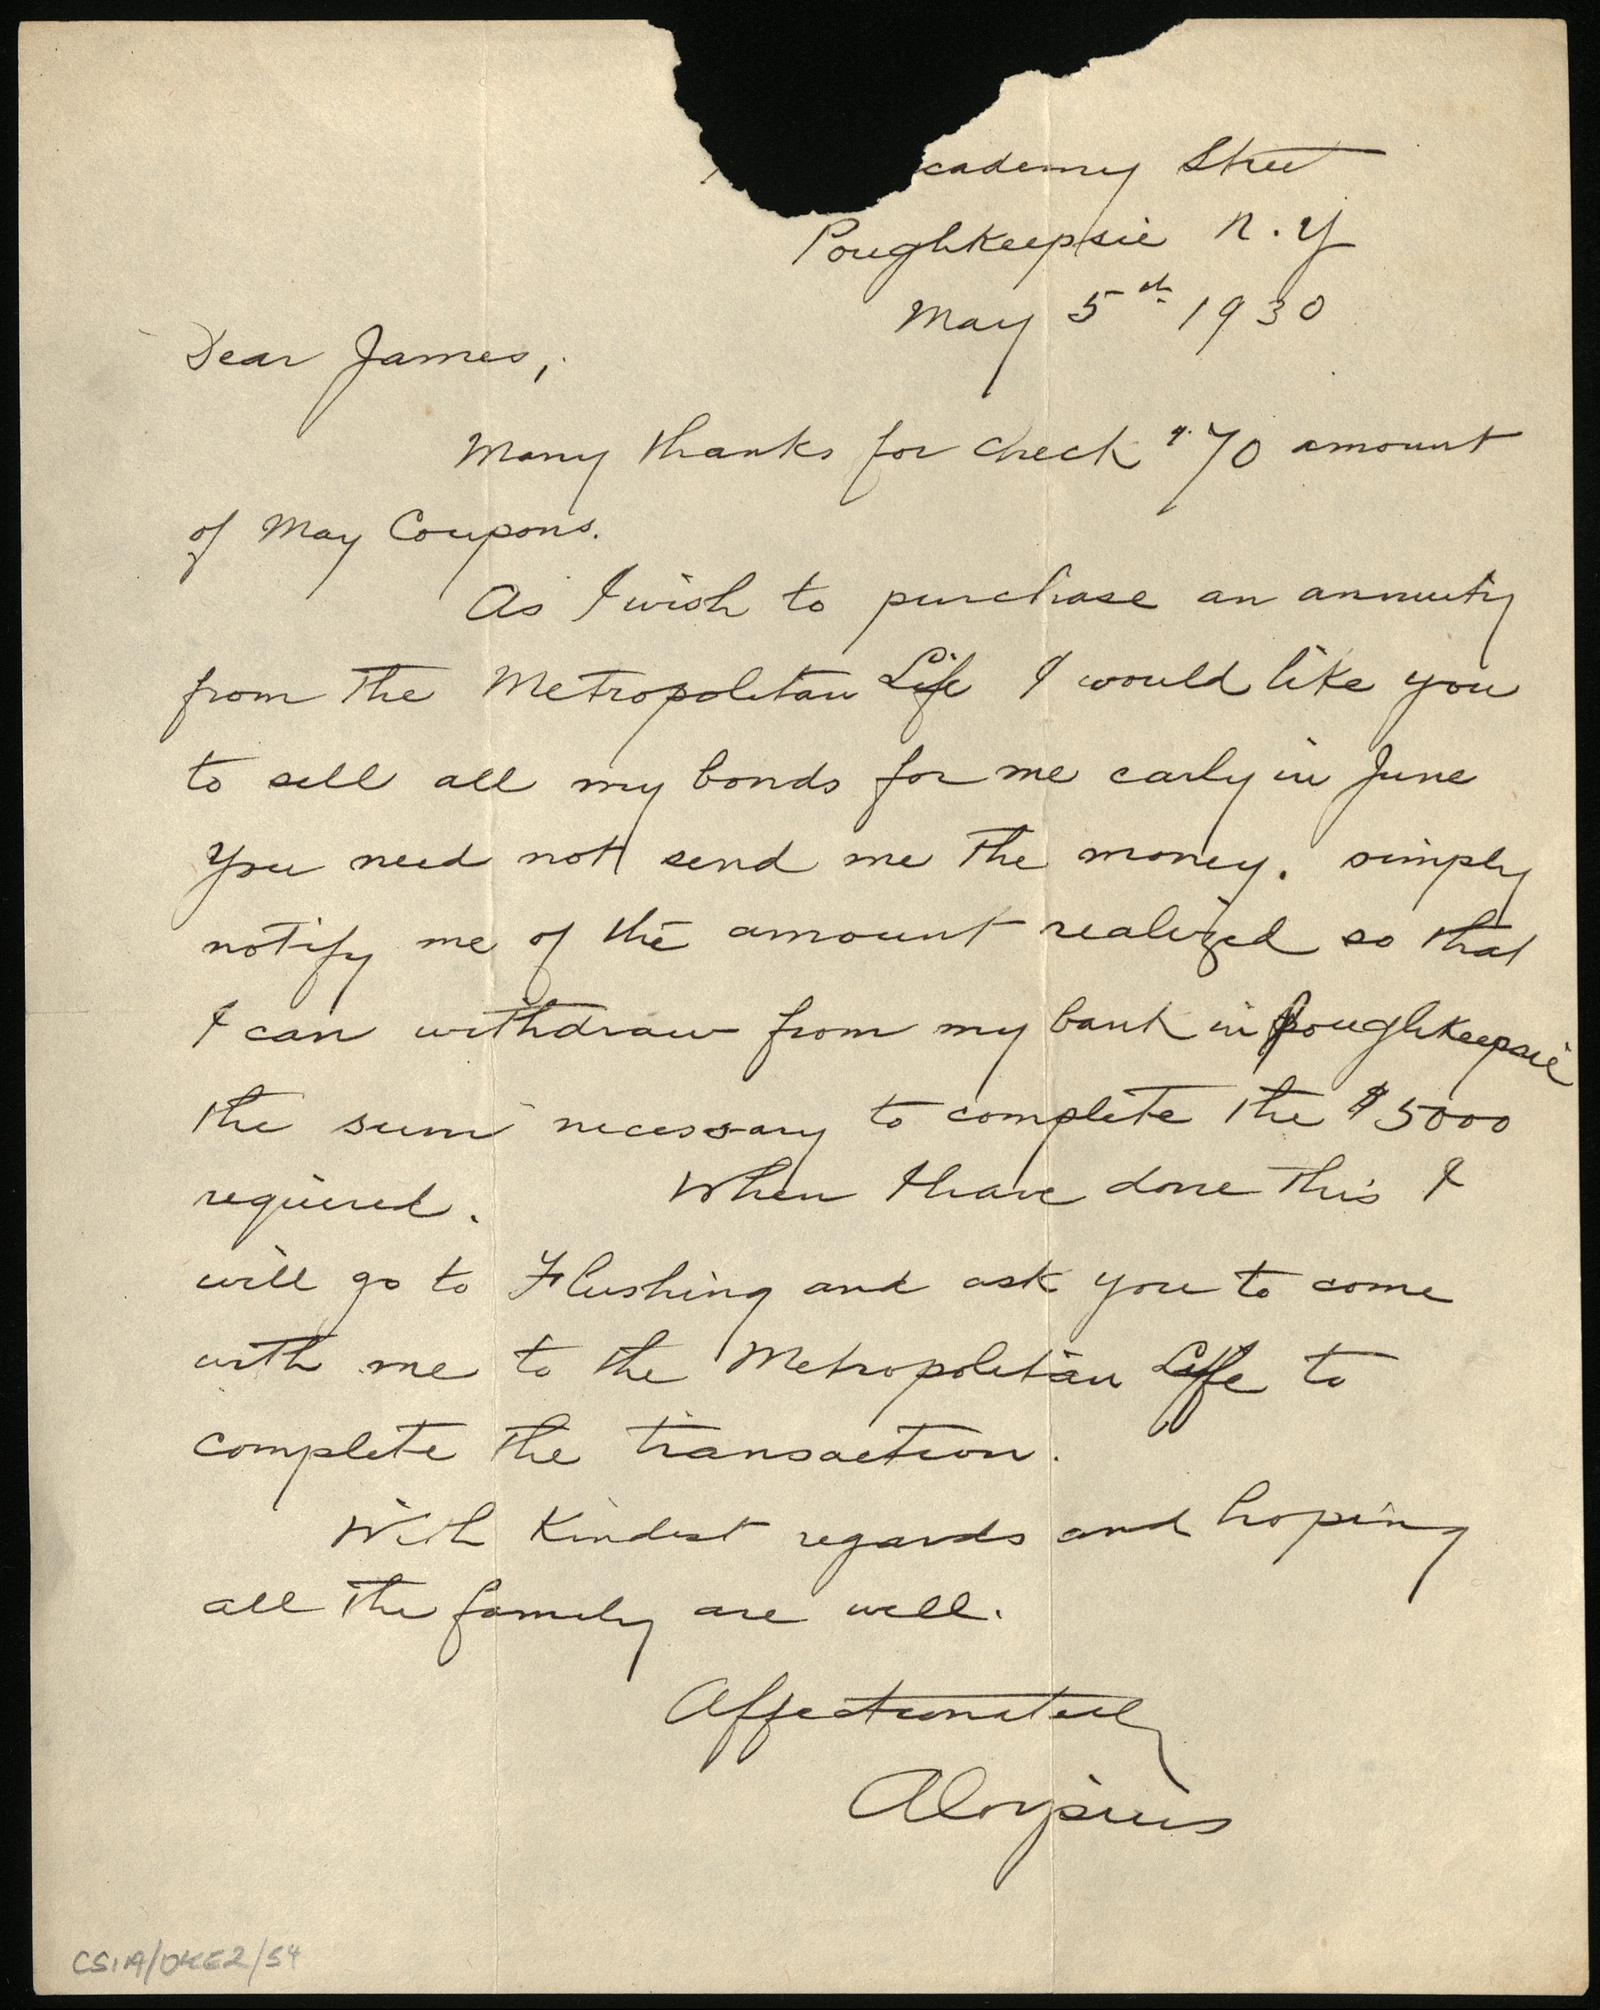 cademy Street
Poughkeepsie N.Y
May 5th 1930
Dear James,
Many thanks for check $70 amount
of May Coupons.
As I wish to purchase an annuity
from the Metropolitan Life I would like you
to sell all my bonds for me early in June
You need not send me the money. simply
notify me of the amount realized so that
I can withdraw from my bank in Poughkeepsie
the sum necessary to complete the $5000
required. When I have done this I
will go to Flushing and ask you to come
with me to the Metropolitan Life to
complete the transaction.
With kindest regards and hoping
all the family are well.
Affectionately
Aloysius
CSIA/OKE2/54